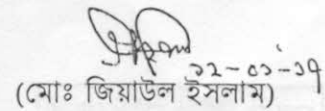 ২২-০১-১৭
(মোঃ জিয়াউল ইসলাম)